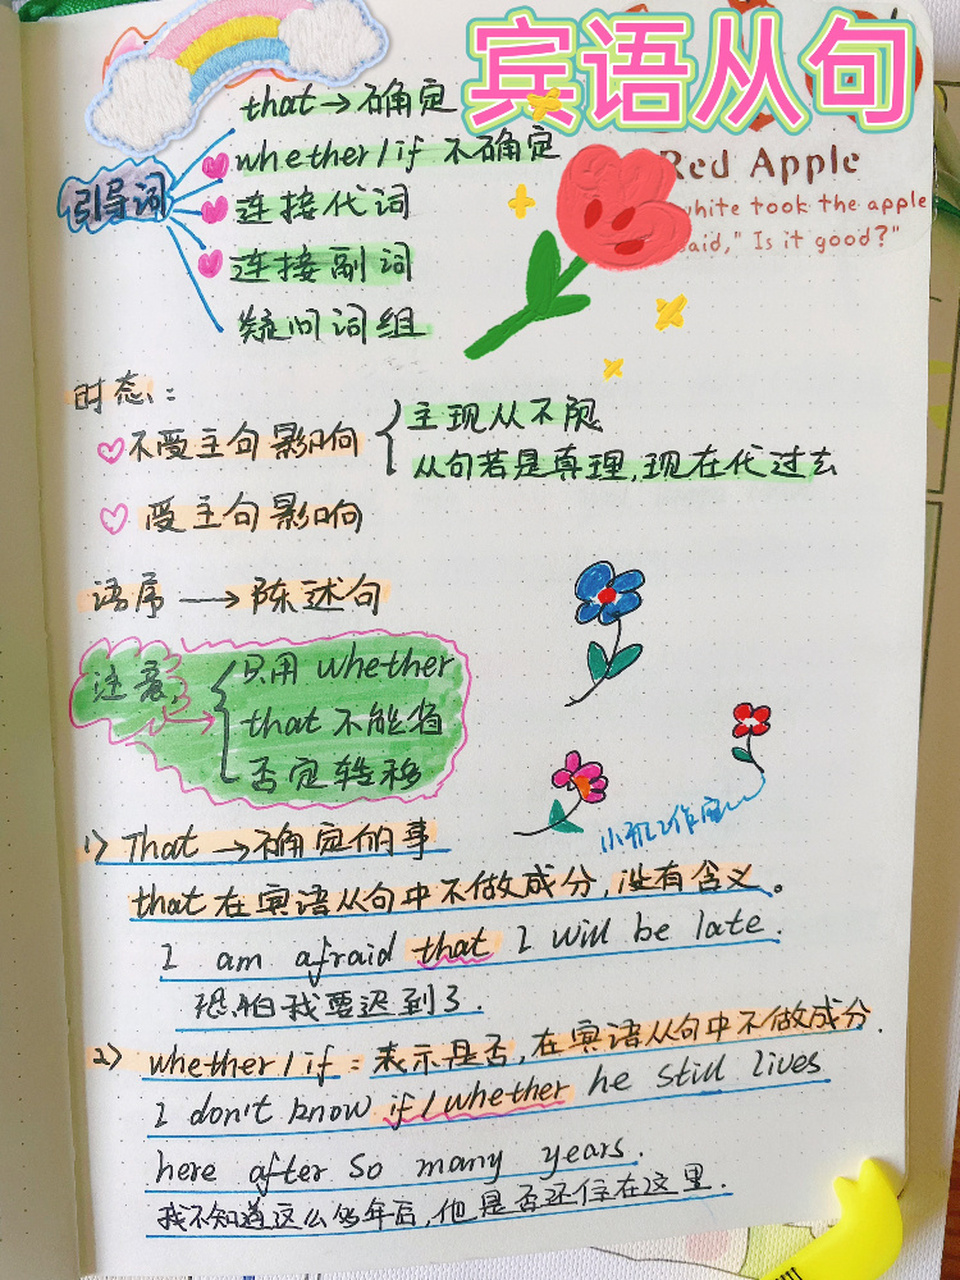 宾语从句
that→确定
whether/if 不确定
引导词
连接代词
连接副词
疑问词组
Red Apple
white took the apple
said," Is it good?"
时态:
不受主句影响
主现从不限
从句若是真理,现在代过去
受主句影响
语序→陈述句
注意,
只用 whether
that 不能省
否定转移
1) That→确定的事
that在宾语从句中不做成分,没有含义。
I am afraid that I will be late.
恐怕我要迟到了.
2) whether/if:表示是否,在宾语从句中不做成分.
I don't know if/whether he still lives
here after so many years.
我不知道这么多年后,他是否还住在这里.